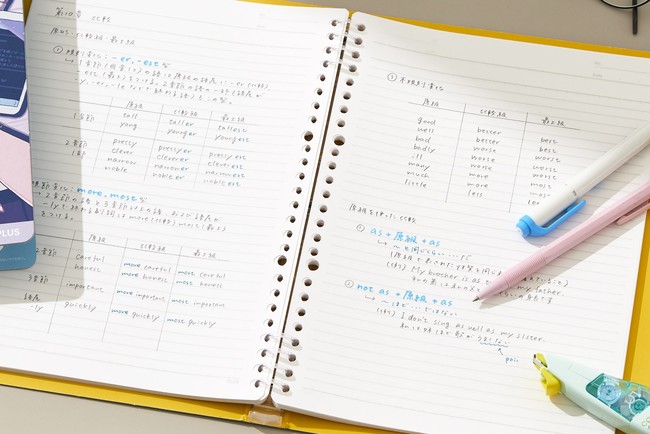 第10章 比較
原級・比較級・最上級
① 規則変化: -er, -est 型
-est (最上)をつける。2音節の語の一部(語尾が
-y, -er, -le などで終わる語)もこの型。
原級 比較級 最上級
1音節 tall taller tallest
young younger youngest
2音節 pretty prettyer prettyest
clever cleverer cleverest
narrow narrower narrowest
noble nobler noblest
more, most 型
原級 比較級 最上級
2音節 careful more careful most careful
honest more honest most honest
3音節 important more important most important
語尾 -ly quickly more quickly most quickly
② 不規則変化
原級 比較級 最上級
good better best
well better best
bad worse worst
badly worse worst
ill worse worst
many more most
much more most
little less
原級を使った比較
① as + 原級 + as
→ 〜と同じくらい…だ
(例) My brother is as my father.
② not as + 原級 + as
→ 〜ほど…ではない
(例) I don't sing as well as my sister.
PLUS